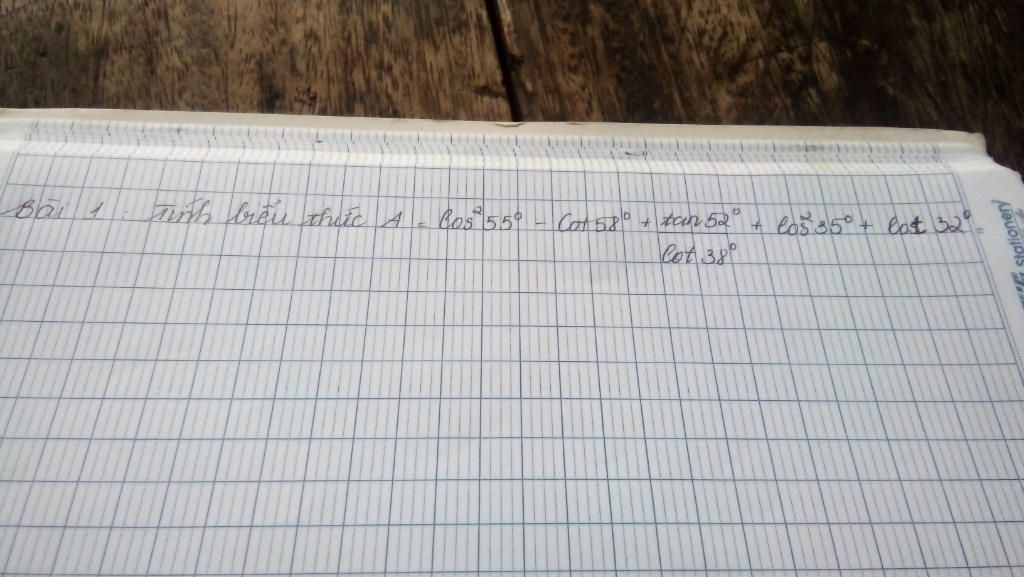 Bài 1 : Tính biểu thức A = Cos²55° - Cot58° + tan52° / Cot 38° + Cos²35° + Cot 32° =
stationery